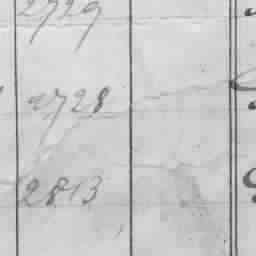 2729
2728
2813